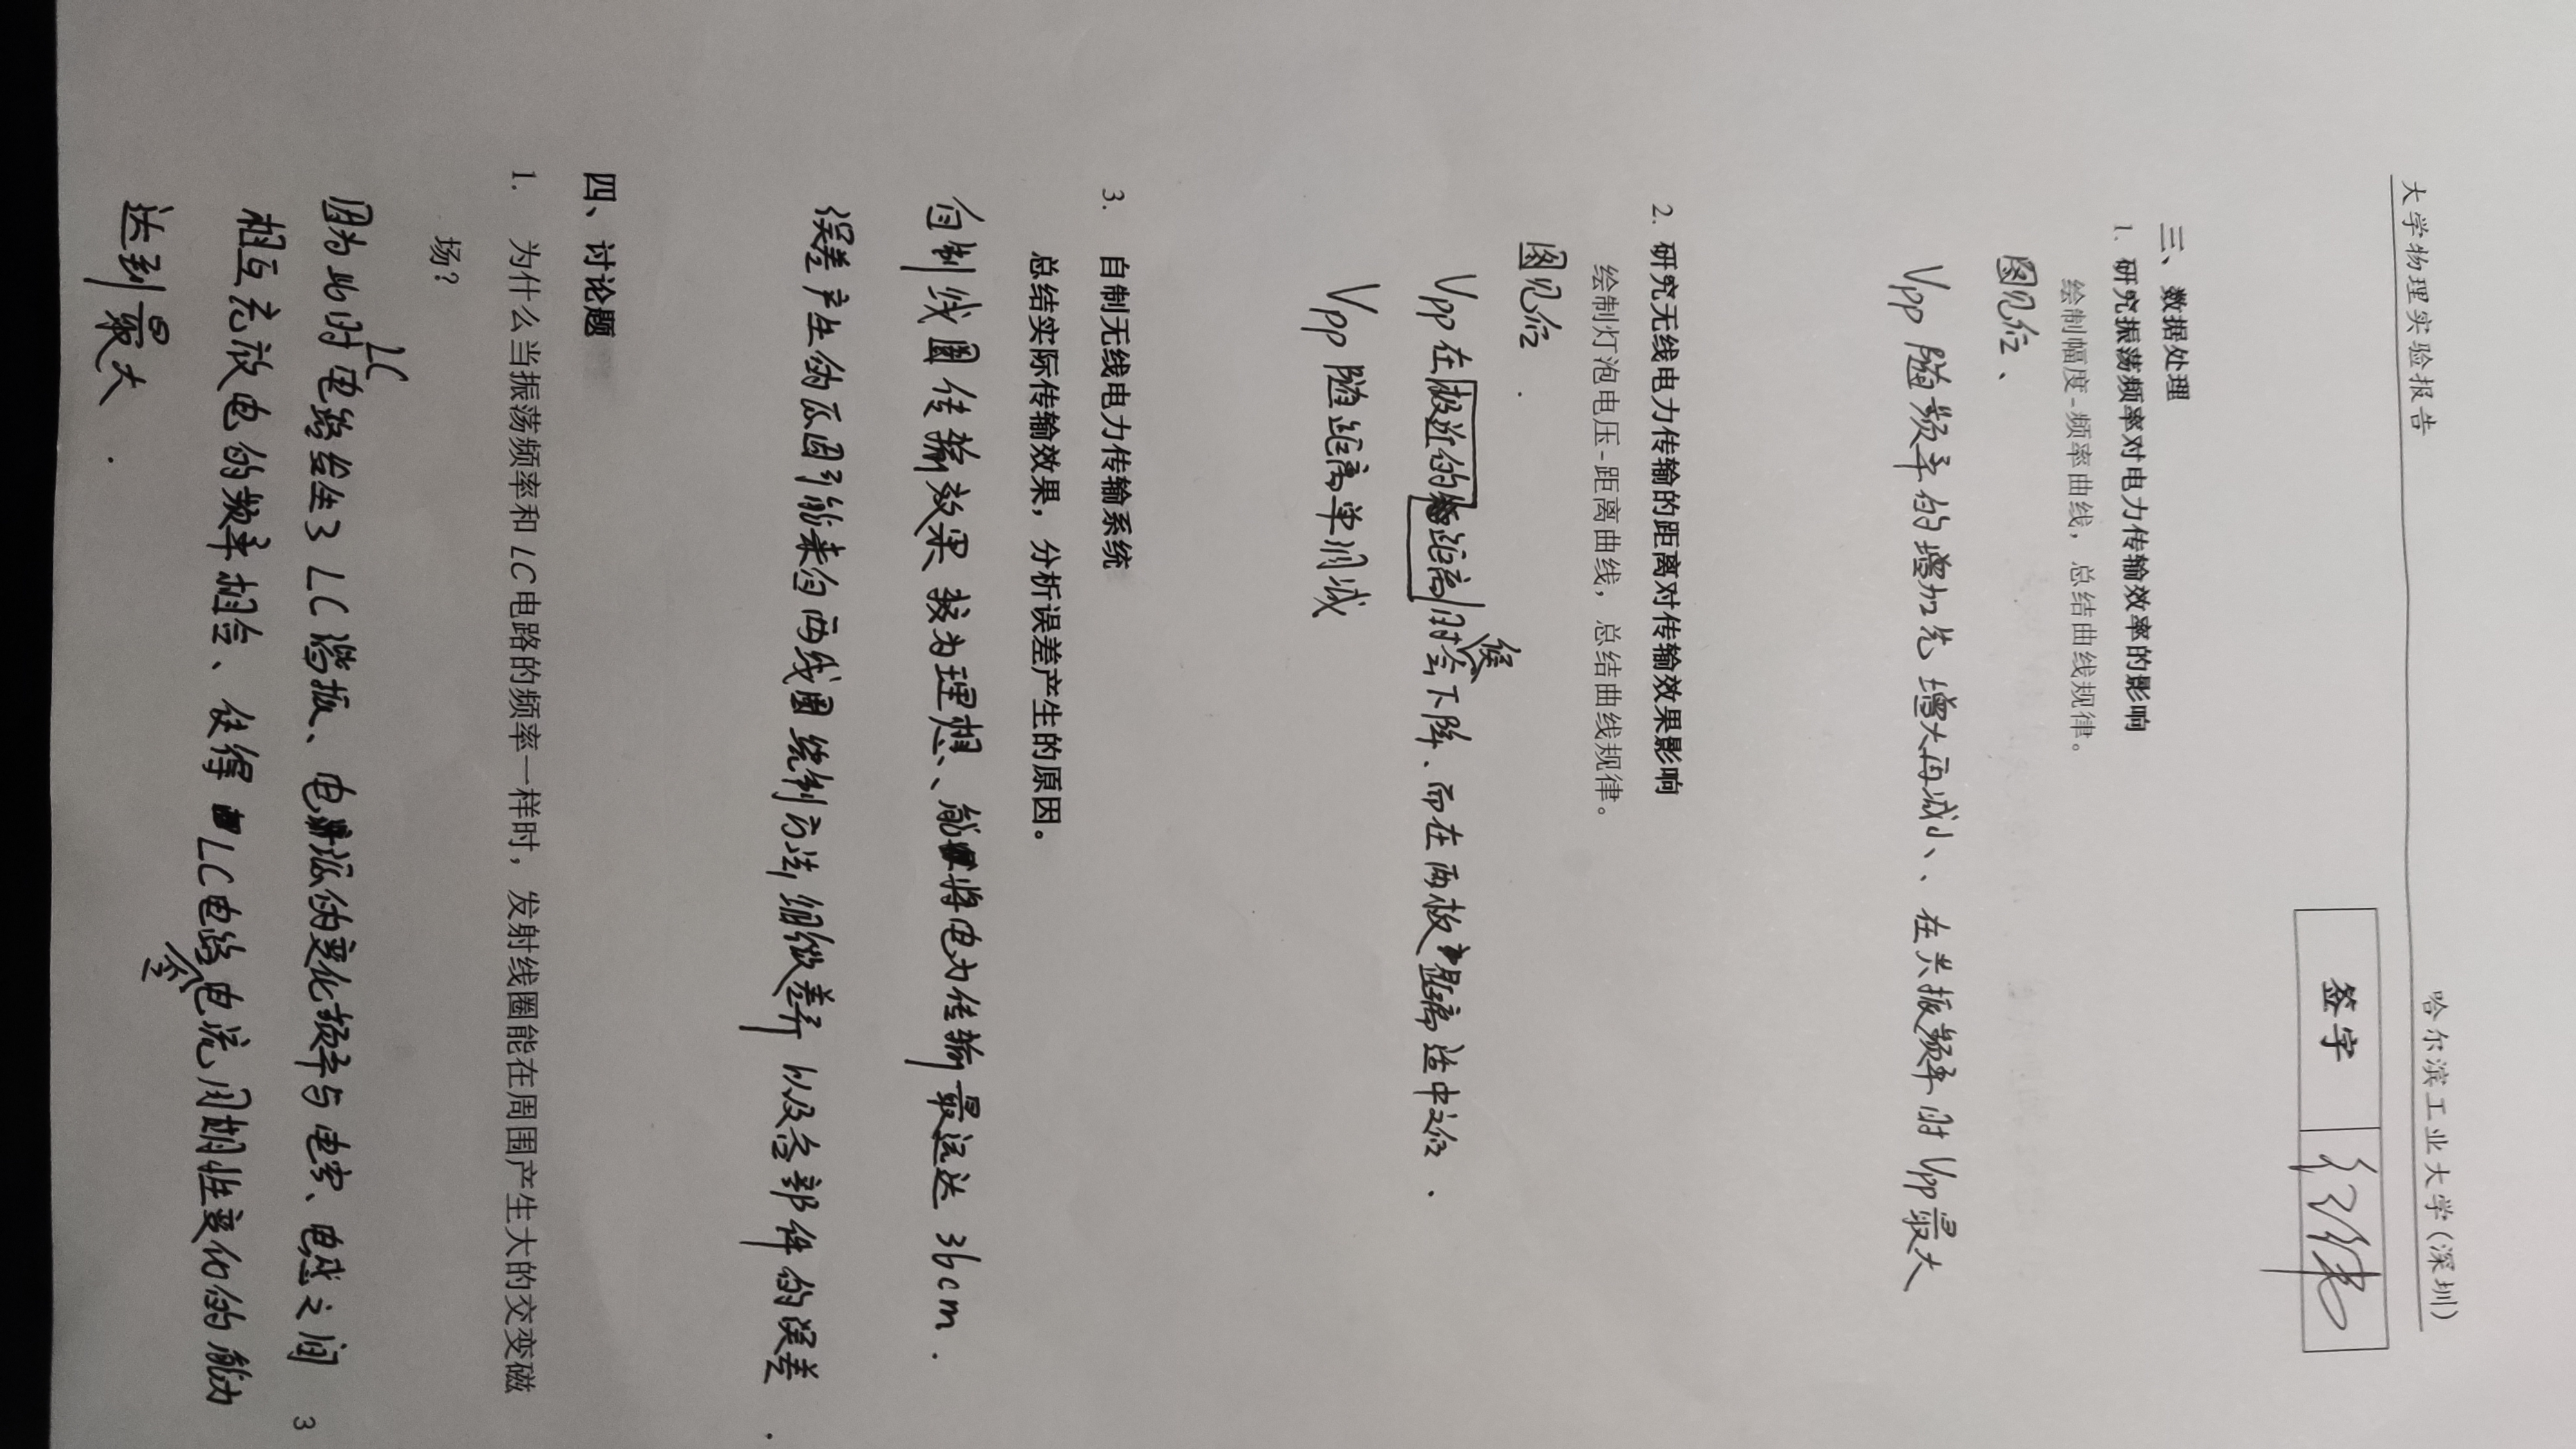 大学物理实验报告
哈尔滨工业大学(深圳)
签字
三、数据处理
1. 研究振荡频率对电力传输效率的影响
绘制幅度-频率曲线，总结曲线规律。
图见后、
Vpp 随频率的增加先增大再减小、在共振频率时 Vpp 最大
2. 研究无线电力传输的距离对传输效果影响
绘制灯泡电压-距离曲线，总结曲线规律。
图见后.
候
Vpp 在极近的距离时会下降、而在两板距离适中之后.
Vpp 随距离单调减
3. 自制无线电力传输系统
总结实际传输效果，分析误差产生的原因。
自制线圈传输效果较为理想、能将电力传输最远达 36cm.
误差产生的原因可能来自两线圈绕制方法细微差异以及各部件的误差.
四、讨论题
1. 为什么当振荡频率和 LC 电路的频率一样时，发射线圈能在周围产生大的交变磁
场？
LC
因为此时电路发生了 LC 谐振、电源的变化频率与电容、电感之间
3
相互充放电的频率相合、使得 LC电路电流周期性变化的能力
令
达到最大.